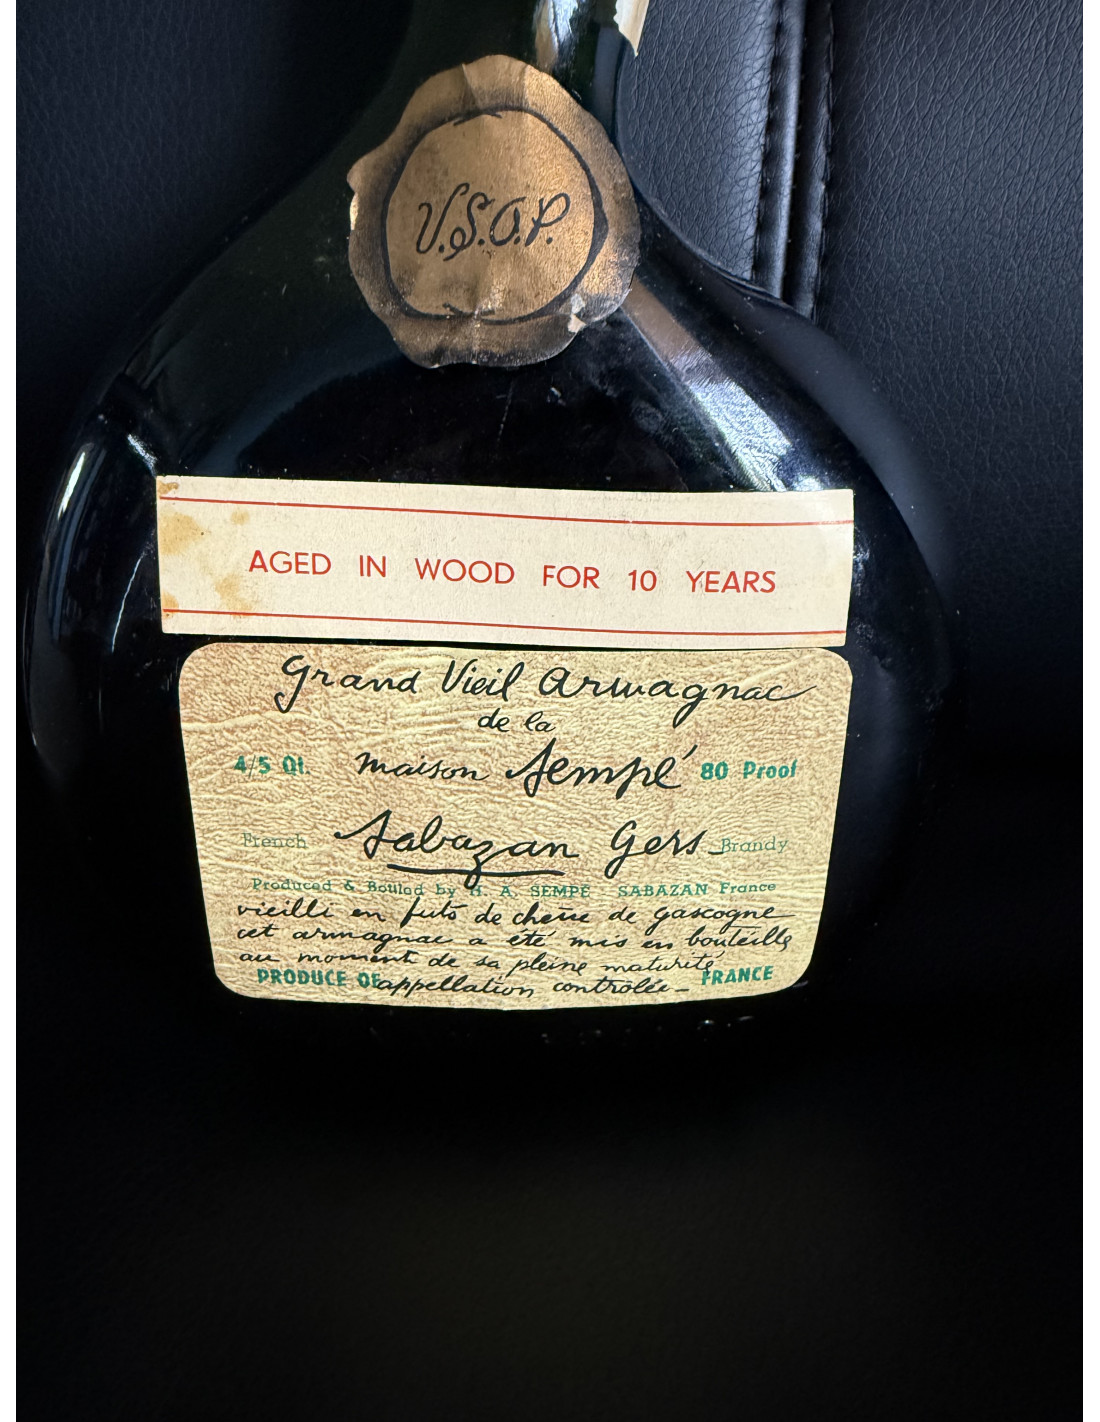 V.S.O.P.
AGED IN WOOD FOR 10 YEARS
Grand Vieil Armagnac
de la
4/5 Qt. maison Sempé 80 Proof
French Sabazan Gers Brandy
Produced & Bottled by H. A. SEMPÉ - SABAZAN France
vieilli en futs de chêne de gascogne
cet armagnac a été mis en bouteille
au moment de sa pleine maturité
PRODUCE OF appellation contrôlée FRANCE